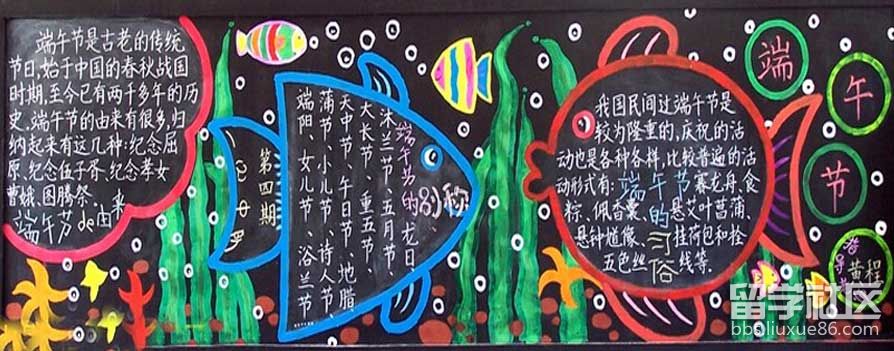 端午节是古老的传统
节日,始于中国的春秋战国
时期,至今已有两千多年的历
史。端午节的由来有很多,归
纳起来有这几种:纪念屈
原、纪念伍子胥、纪念孝女
曹娥、图腾祭。
端午节de由来
第四期
端午节的别称
沐兰节、五月节、龙日、
大长节、重五节、
天中节、午日节、地腊、
蒲节、小儿节、诗人节、
端阳、女儿节、浴兰节......
我国民间过端午节是
较为隆重的,庆祝的活
动也是各种各样,比较普遍的活
动形式有:赛龙舟、食
粽、佩香囊、悬艾叶菖蒲、
悬钟馗像、挂荷包和拴
五色丝线等.
端午节的习俗
端
午
节
黄程
留学社区
bbs.liuxue86.com